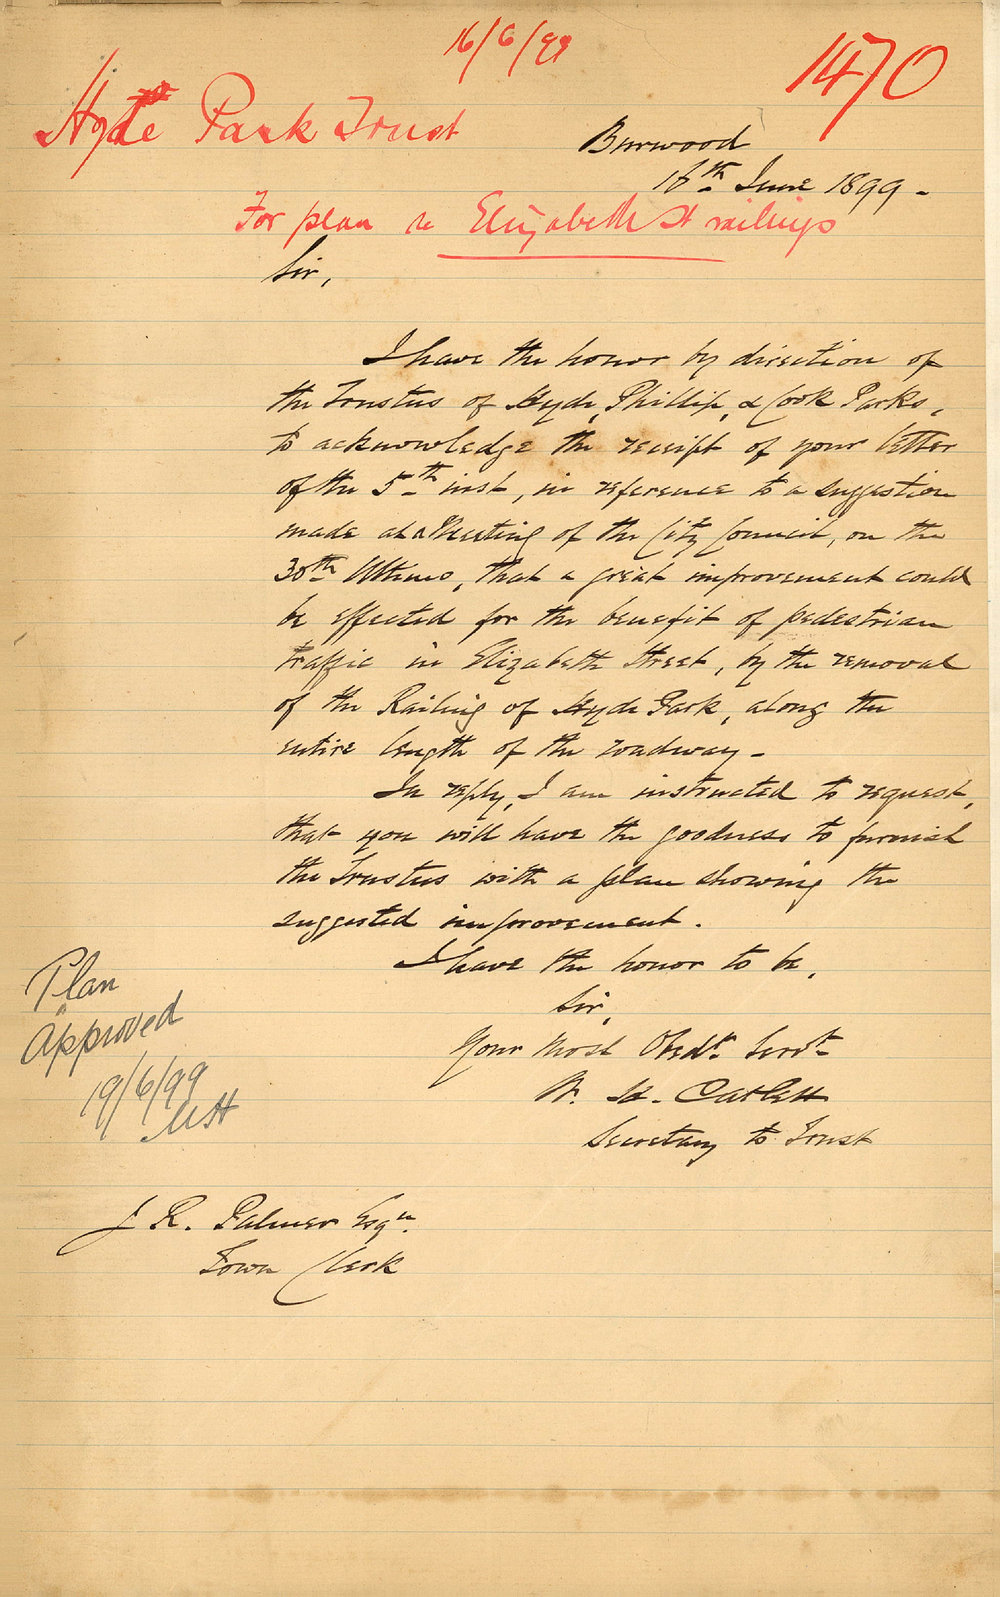 16/6/99
1470
Hyde Park Trust
Burwood
16th June 1899 -
For plan re Elizabeth St railings
Sir,
I have the honor by direction of
the Trustees of Hyde, Phillip, & Cook Parks,
to acknowledge the receipt of your letter
of the 5th inst, in reference to a suggestion
made at a Meeting of the City Council, on the
30th Ultimo, that a great improvement could
be effected for the benefit of pedestrian
traffic in Elizabeth Street, by the removal
of the Railing of Hyde Park, along the
entire length of the roadway -
In reply, I am instructed to request,
that you will have the goodness to furnish
the Trustees with a plan showing the
suggested improvement.
I have the honor to be,
Sir,
Your Most Obedt. Servt
W. H. Catlett
Secretary to Trust
Plan
Approved
19/6/99
J R. Palmer Esqre.
Town Clerk